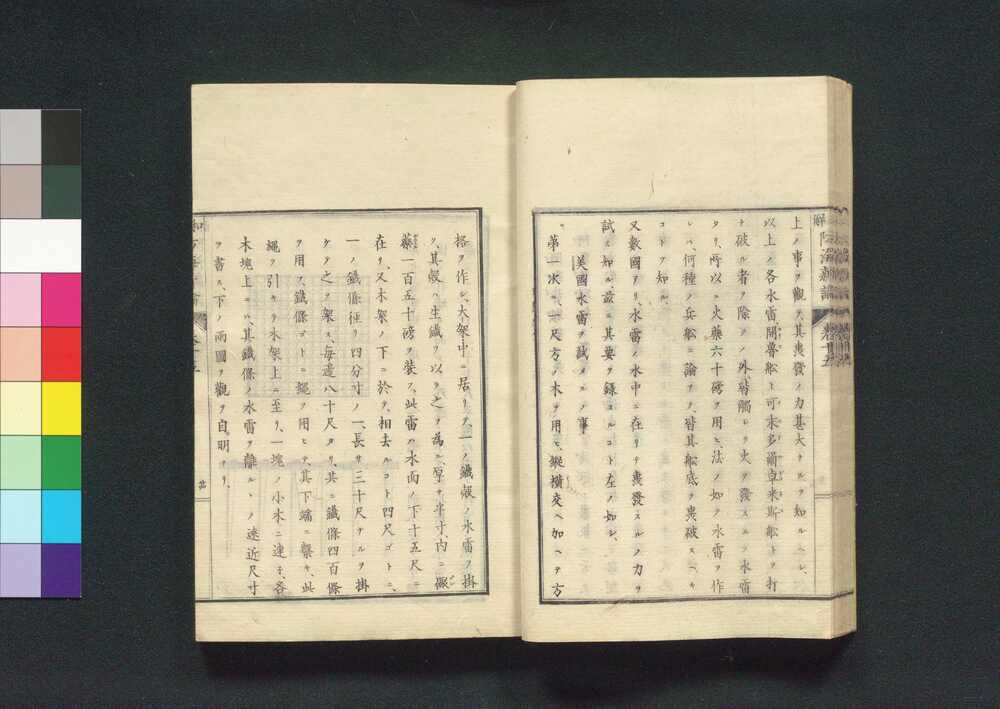 上ノ事ヲ觀テ、其轟發ノ力甚大ナルヲ知ルベシ、
以上ノ各水雷開魯船ト可末多爾卓来斯船トヲ打
チ破ル者ヲ除クノ外、皆觸レテ火ヲ發スルノ水雷
タリ、所以ニ火藥六十磅ヲ用ヒ、法ノ如ク水雷ヲ作
レハ、何種ノ兵船ニ論ナク、皆其船底ヲ轟破スヘキ
コトヲ知ル、
又數國アリ、水雷ノ水中ニ在リテ轟發スルノ力ヲ
試ミ知ル、茲ニ其要ヲ録スルコト左ノ如シ、
美國水雷ヲ試ムル事
第一次ニ、一尺方ノ木ヲ用ヒ、縱横交ヘ加ヘテ方
格ヲ作シ、大架中ニ居リテ、一ノ鐵殻ノ水雷ヲ掛
ク、其殻ハ生鐵ヲ以テ之ヲ為ル、厚サ半寸、内ニ
藥一百五十磅ヲ裝ス、此雷ハ水面ノ下十五尺ニ
在リ、又木架ノ下ニ於テ、相去ルコト四尺ゴトニ、
一ノ鐵條徑リ四分寸ノ一、長サ三十尺ナルヲ掛
ケテ之ヲ架ス、毎邊八十尺タリ、其ニ鐵條四百條
ヲ用フ、鐵條ゴトニ繩ヲ用ヒテ、其下端ニ繋キ、此
繩ヲ引キテ木架上ニ至リ、一塊ノ小木ニ連ネ、各
木塊上ニハ、其鐵條ノ水雷ヲ離ルヽノ遠近尺寸
ヲ書ス、下ノ兩圖ヲ觀テ自明ナリ、